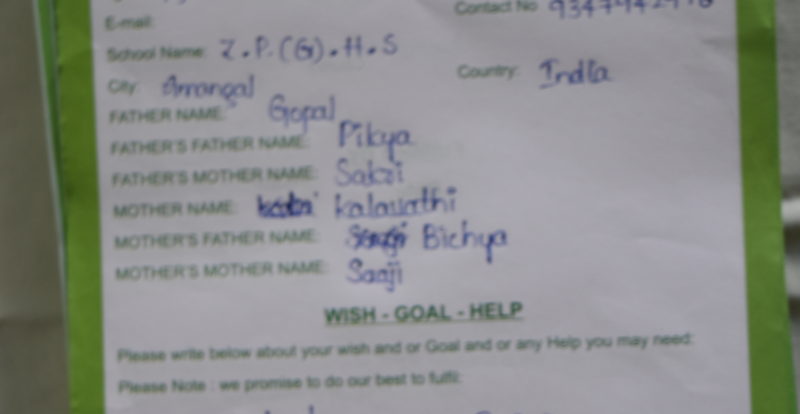 E-mail:
Contact No
School Name: Z.P.(G).H.S
City: Arrangal
Country: India
FATHER NAME: Gopal
FATHER'S FATHER NAME: Pikya
FATHER'S MOTHER NAME: Sakri
MOTHER NAME: kalavathi
MOTHER'S FATHER NAME: Bichya
MOTHER'S MOTHER NAME: Saaji
WISH - GOAL - HELP
Please write below about your wish and or Goal and or any Help you may need:
Please Note : we promise to do our best to fulfil: